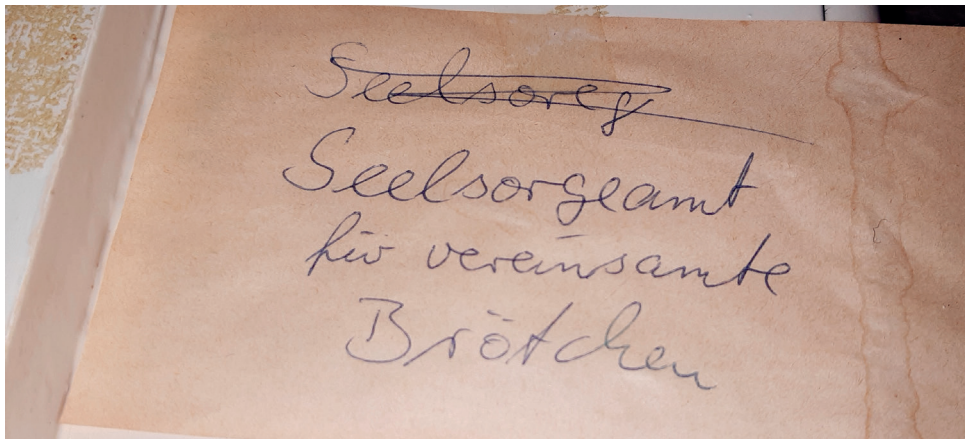 Seelsoreg
Seelsorgeamt
für vereinsamte
Brötchen